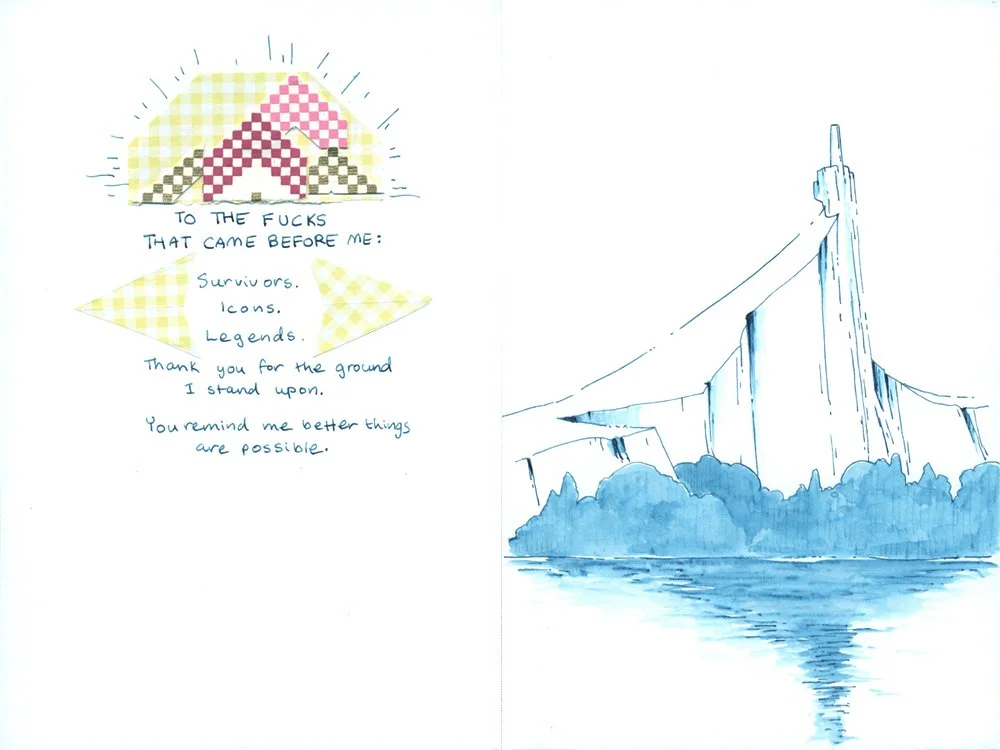 TO THE FUCKS
THAT CAME BEFORE ME:
Survivors.
Icons.
Legends.
Thank you for the ground
I stand upon.
You remind me better things
are possible.